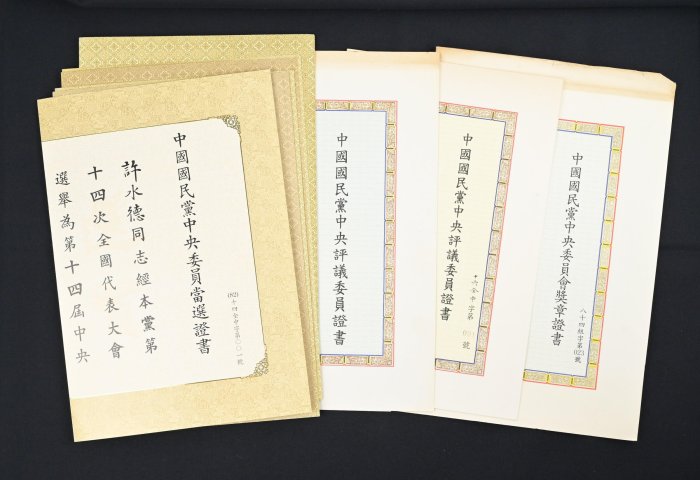 中國國民黨中央委員當選證書
(82)十四全中字第〇〇一號
許水德同志經本黨第
十四次全國代表大會
選舉為第十四屆中央
中國國民黨中央評議委員證書
中國國民黨中央評議委員證書
十六全中字第
號
中國國民黨中央委員會獎章證書
八十四組字第023號